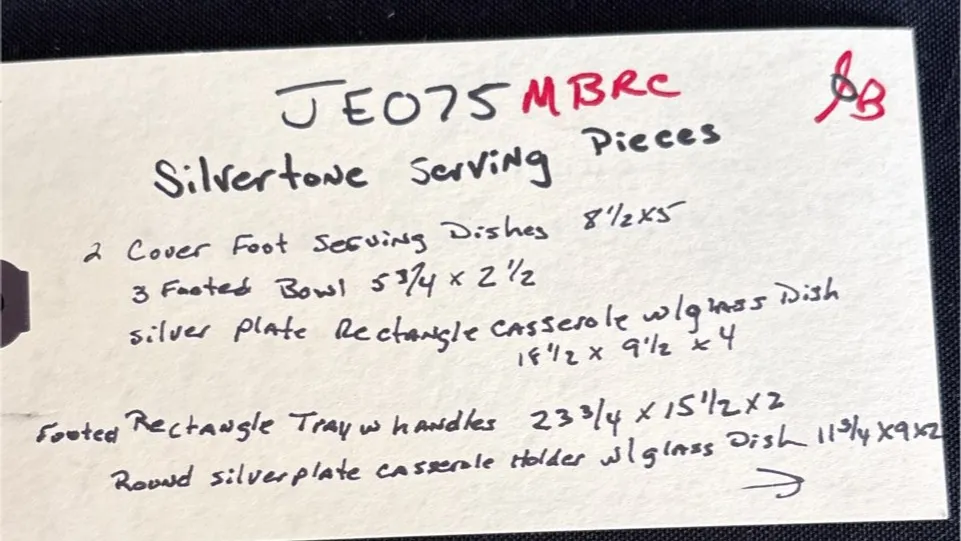 JE075 MBRC
Silvertone Serving Pieces
2 Cover Foot Serving Dishes 8 1/2 x 5
3 Footed Bowl 5 3/4 x 2 1/2
silver plate Rectangle casserole w/glass Dish
18 1/2 x 9 1/2 x 4
Footed Rectangle Tray w handles 23 3/4 x 15 1/2 x 2
Round silverplate casserole Holder w/glass Dish 11 3/4 x 9 x 2